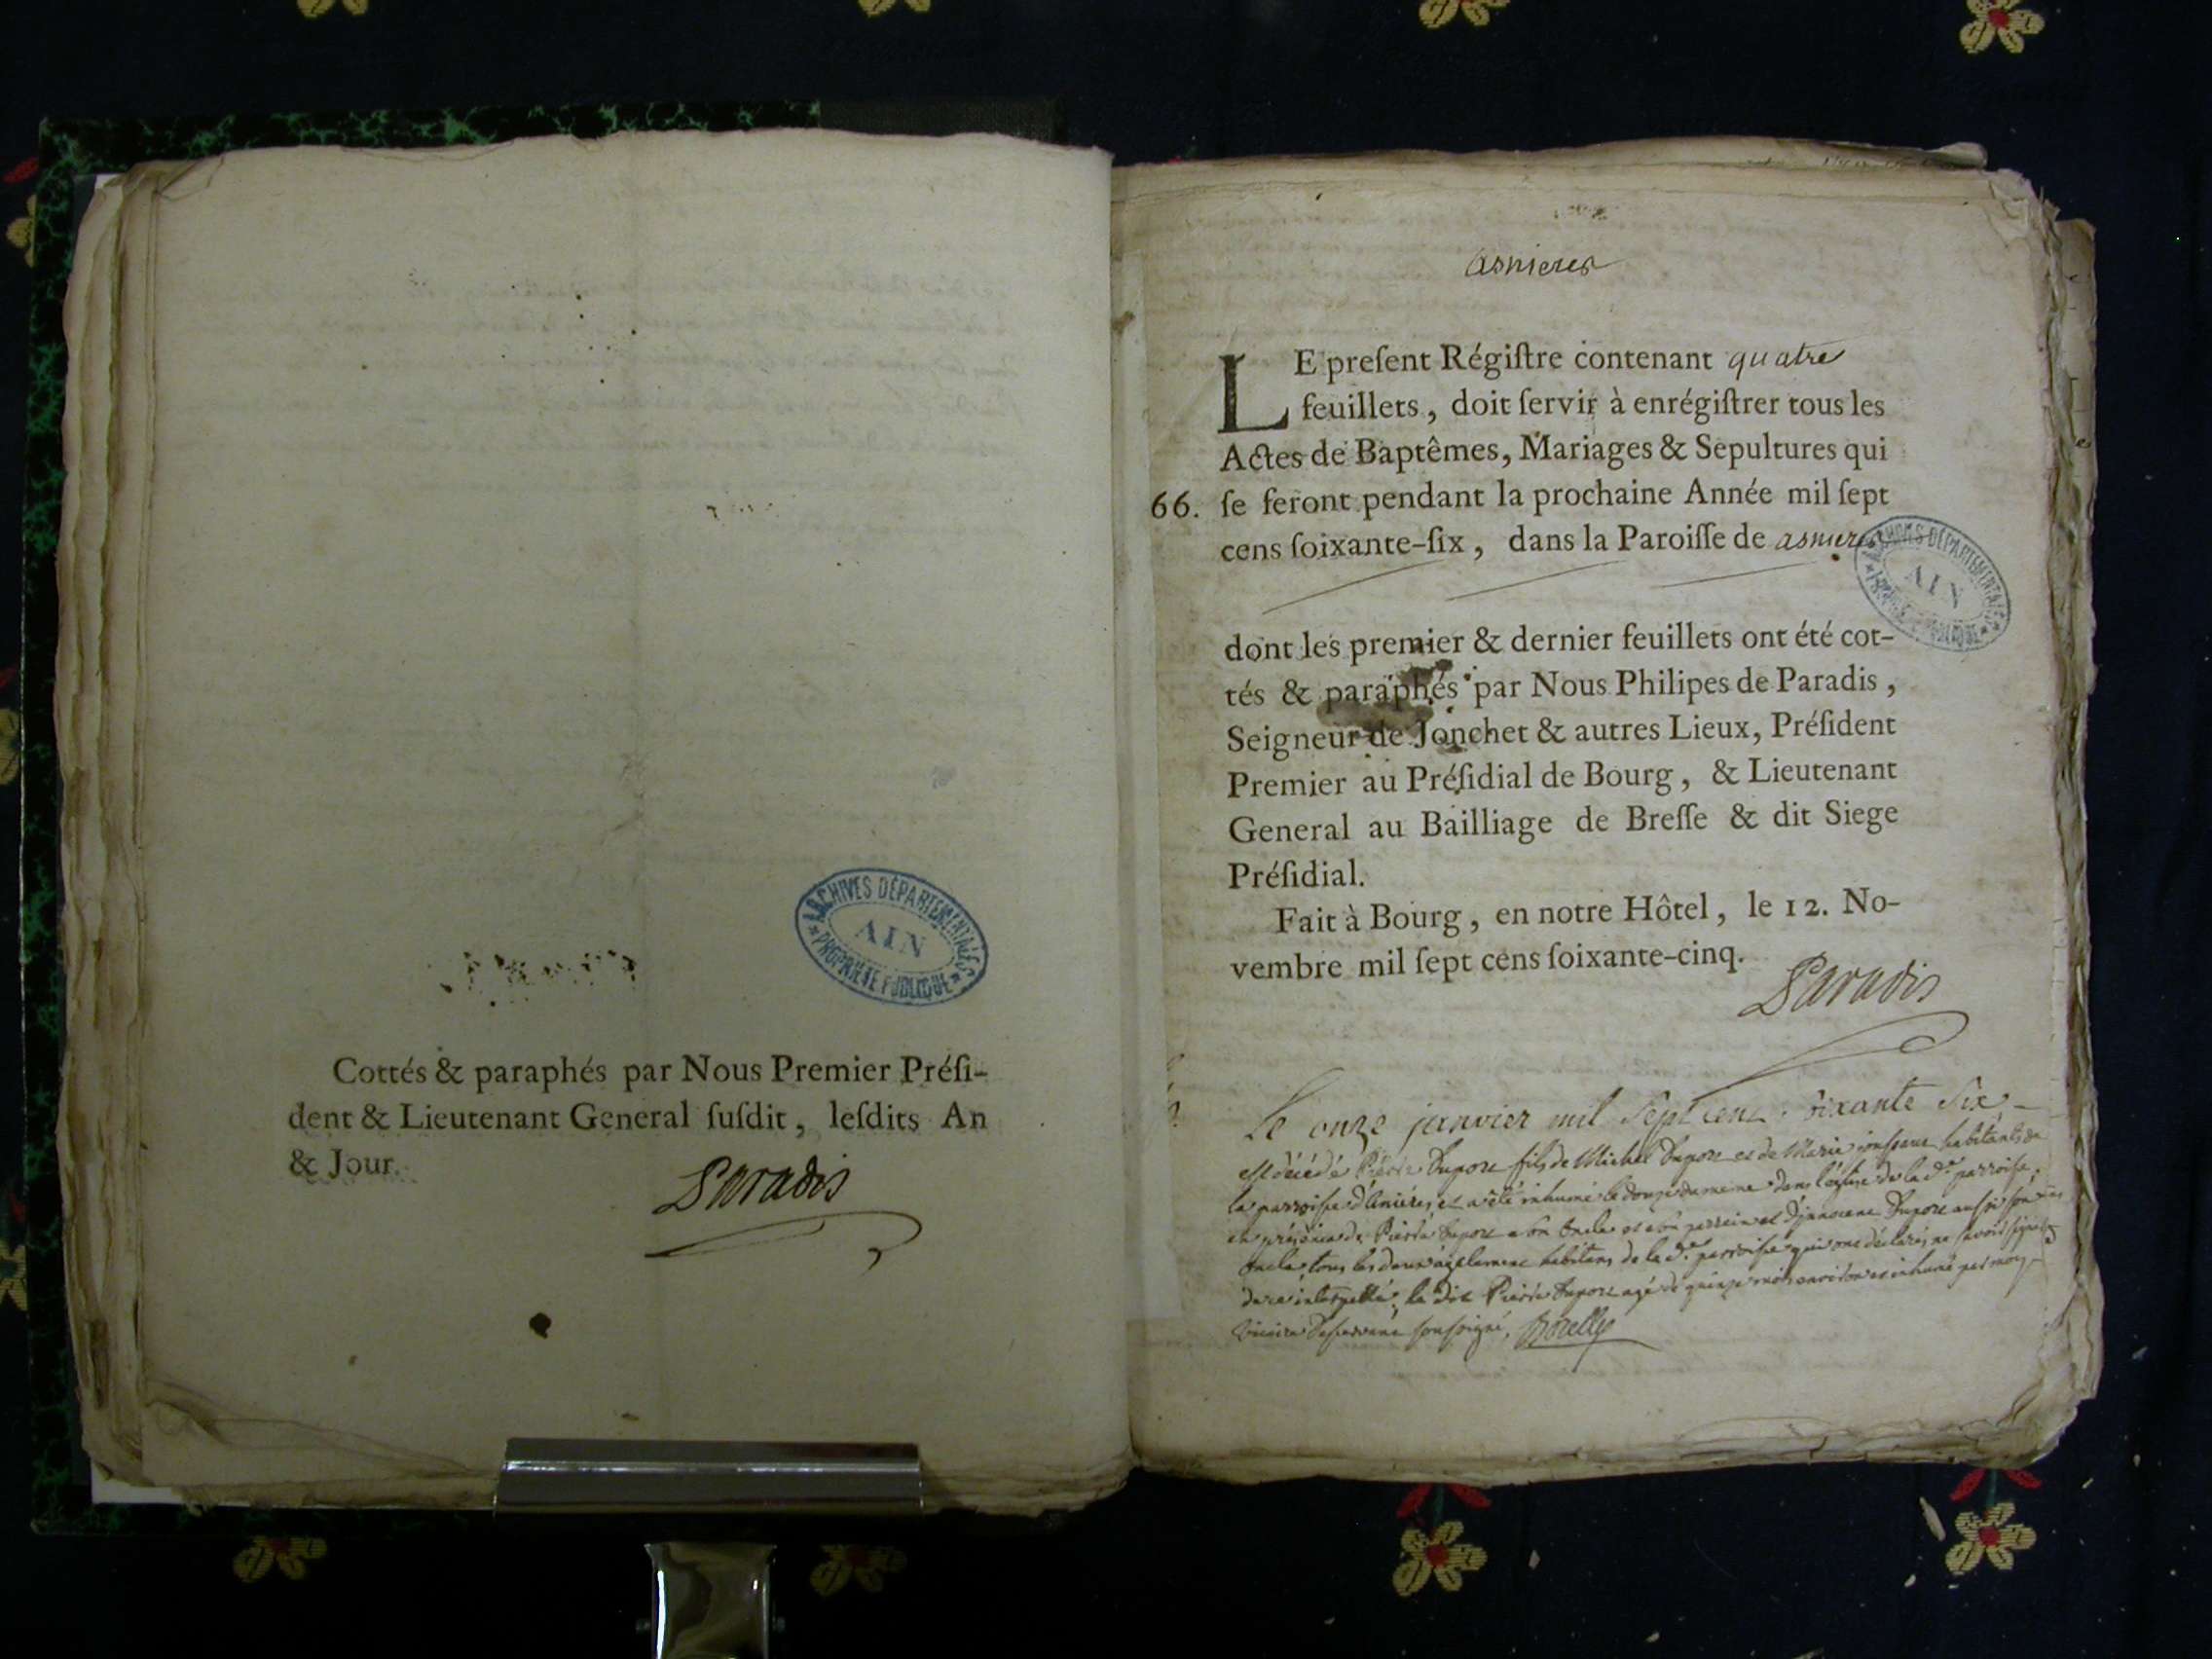 Cottés & paraphés par Nous Premier Préſi-
dent & Lieutenant General ſuſdit, leſdits An
& Jour.
Paradis
ARCHIVES DÉPARTEMENTALES
AIN
PROPRIÉTÉ PUBLIQUE
asnieres
LE preſent Régiſtre contenant quatre
feuillets, doit ſervir à enrégiſtrer tous les
Actes de Baptêmes, Mariages & Sepultures qui
66. ſe feront pendant la prochaine Année mil ſept
cens ſoixante-ſix, dans la Paroiſſe de asnieres
ARCHIVES DÉPARTEMENTALES
AIN
dont les premier & dernier feuillets ont été cot-
tés & paraphés par Nous Philipes de Paradis,
Seigneur de Jonchet & autres Lieux, Préſident
Premier au Préſidial de Bourg, & Lieutenant
General au Bailliage de Breſſe & dit Siege
Préſidial.
Fait à Bourg, en notre Hôtel, le 12. No-
vembre mil ſept cens ſoixante-cinq.
Paradis
Le onze janvier mil Sept cent soixante Six
est décédé Pierre Dupore fils de Michel Dupore et de Marie habitants de
la parroisse et a été inhumé le douze du meme dans l'église de la d.e parroisse
en présence de Pierre Dupore son oncle et son parrein et Dupore aussi son
oncle tous les deux habitans de la d.e parroisse qui ont déclarés ne savoir signer
de ce la dit Pierre Dupore agé de quinze mois environ et inhumé par moy
vicaire desservant soussigné.